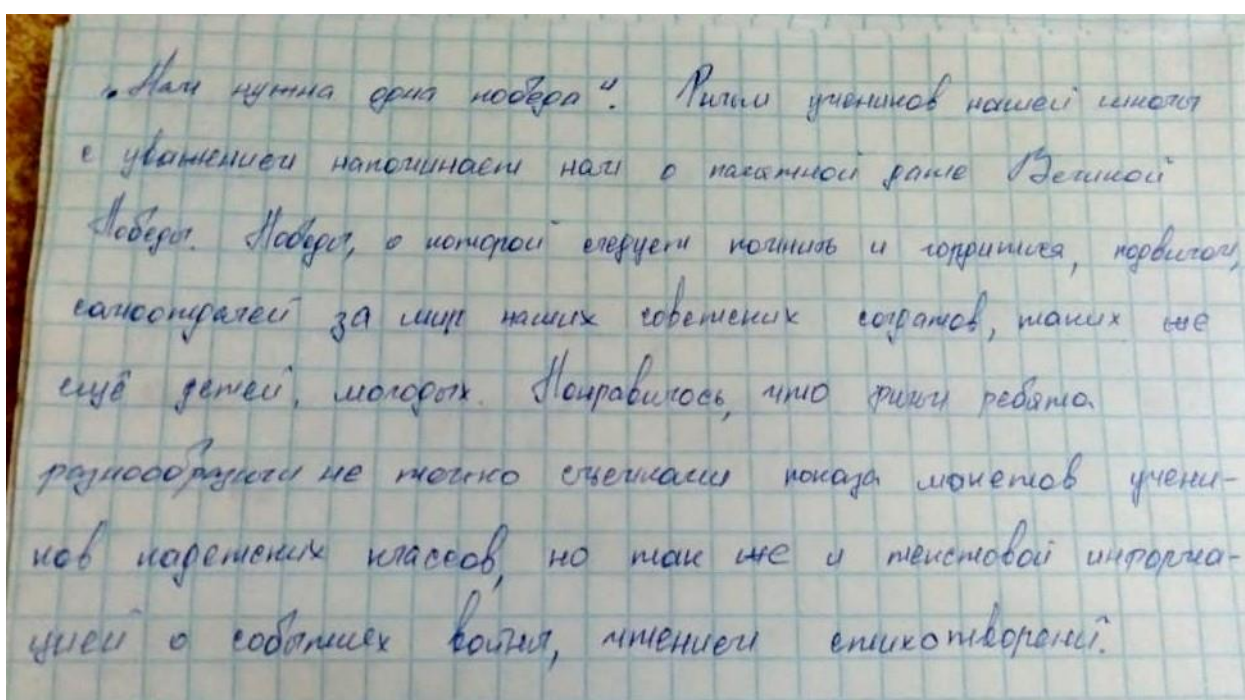 „Нам нужна одна победа". Фильм учеников нашей школы
с уважением напоминает нам о памятной дате Великой
Победы. Победы, о которой следует помнить и гордиться, подвигом,
самоотдачей за мир наших советских солдатов, таких же
ещё детей, молодых. Понравилось, что фильм ребята
разнообразили не только съемками показа макетов учени-
ков кадетских классов, но так же и текстовой информа-
цией о событиях войны, чтением стихотворений.